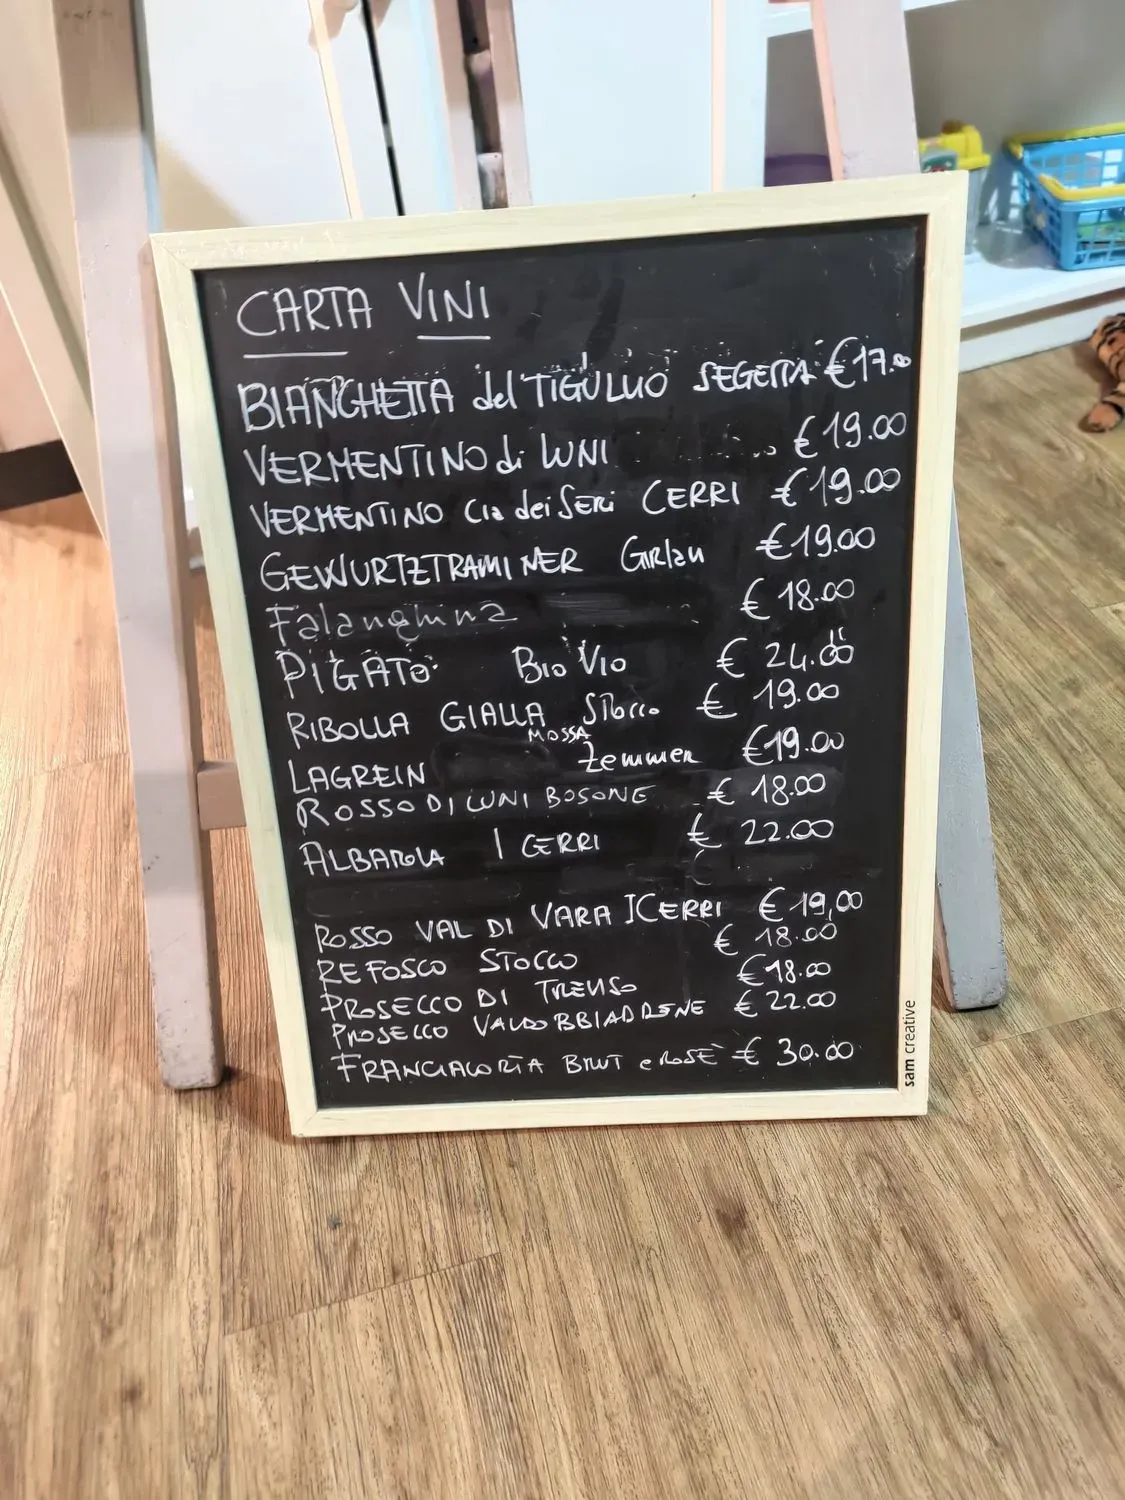 CARTA VINI
BIANCHETTA del TIGULLIO SEGESTA €17.00
VERMENTINO di LUNI €19.00
VERMENTINO Cia dei Seri CERRI €19.00
GEWURTZTRAMINER Girlan €19.00
Falanghina € 18.00
PIGATO BIO VIO € 24.00
RIBOLLA GIALLA MOSSA STOCCO € 19.00
LAGREIN Zemmer €19.00
ROSSO DI LUNI BOSONE € 18.00
ALBAROLA I CERRI € 22.00
ROSSO VAL DI VARA I CERRI € 19,00
REFOSCO STOCCO € 18.00
PROSECCO DI TREVISO €18.00
PROSECCO VALDOBBIADDENE € 22.00
FRANCIACORTA BRUT e ROSÈ € 30.00
sam creative